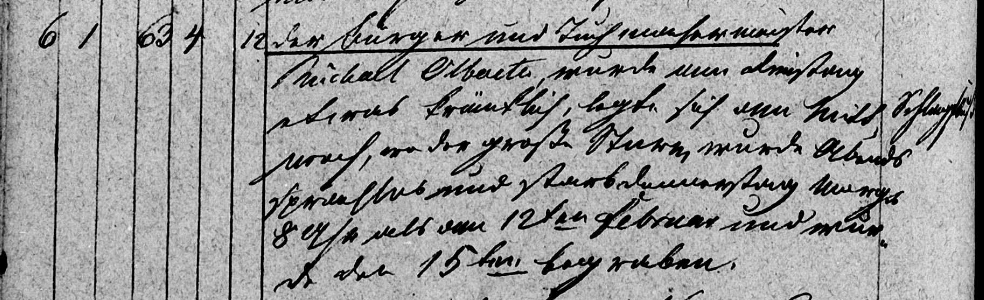 6 1 63 4 12 der Bürger und Tuchmachermeister
Michael Olbeck, wurde am Dienstag
etwas kränklich, legte sich am Mitt Schlagfluß
woch, wo der große Sturm, wurde Abends
sprachlos und starb Donnerstag Morgs
8 Uhr als am 12ten Februar und wur-
de den 15ten begraben.